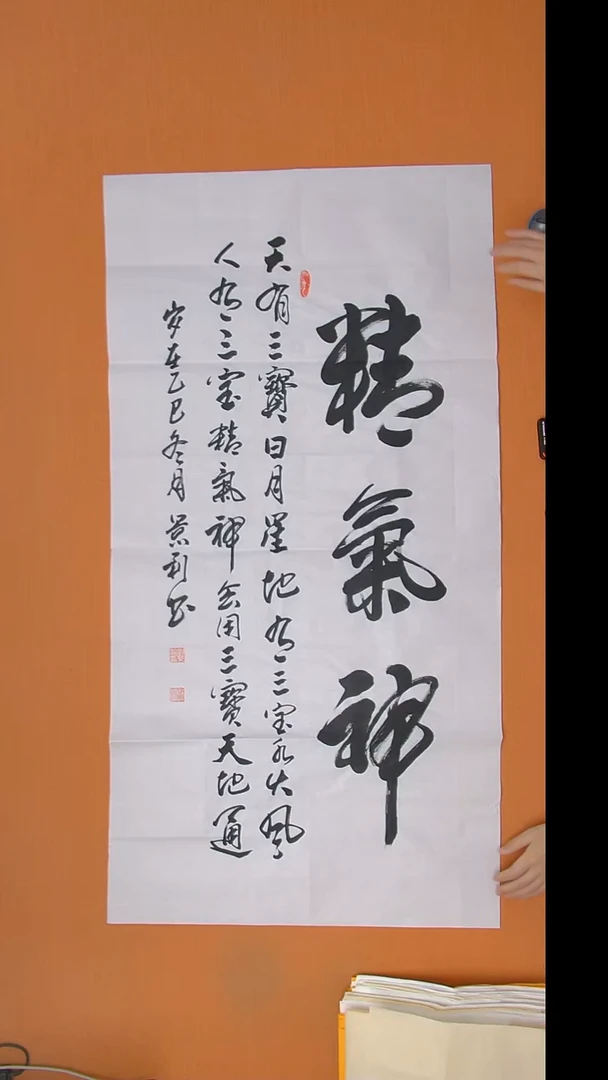 精氣神
天有三寶日月星地有三宝水火風
人有三宝精氣神会用三寶天地通
岁在乙巳冬月景利书